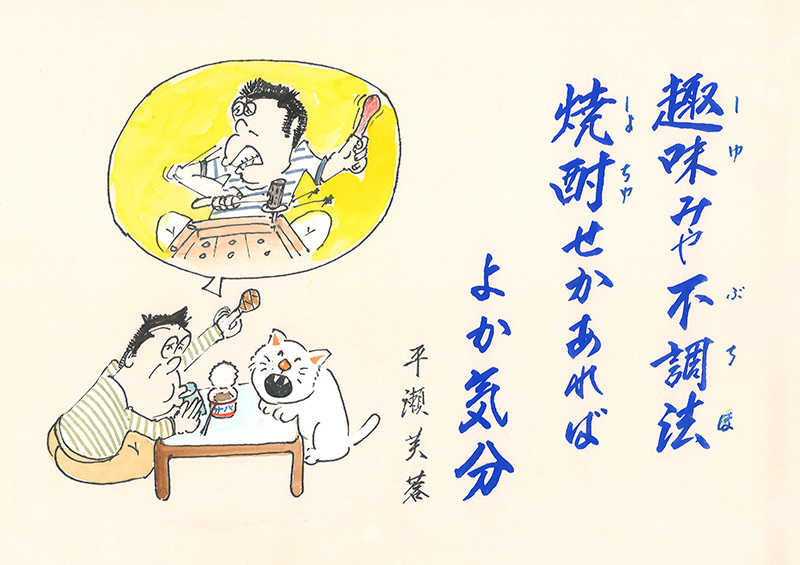 趣味みや不調法
しゆ ぶちほ
焼酎せかあれば
しよちゆ
よか気分
平瀬芙蓉
サバ